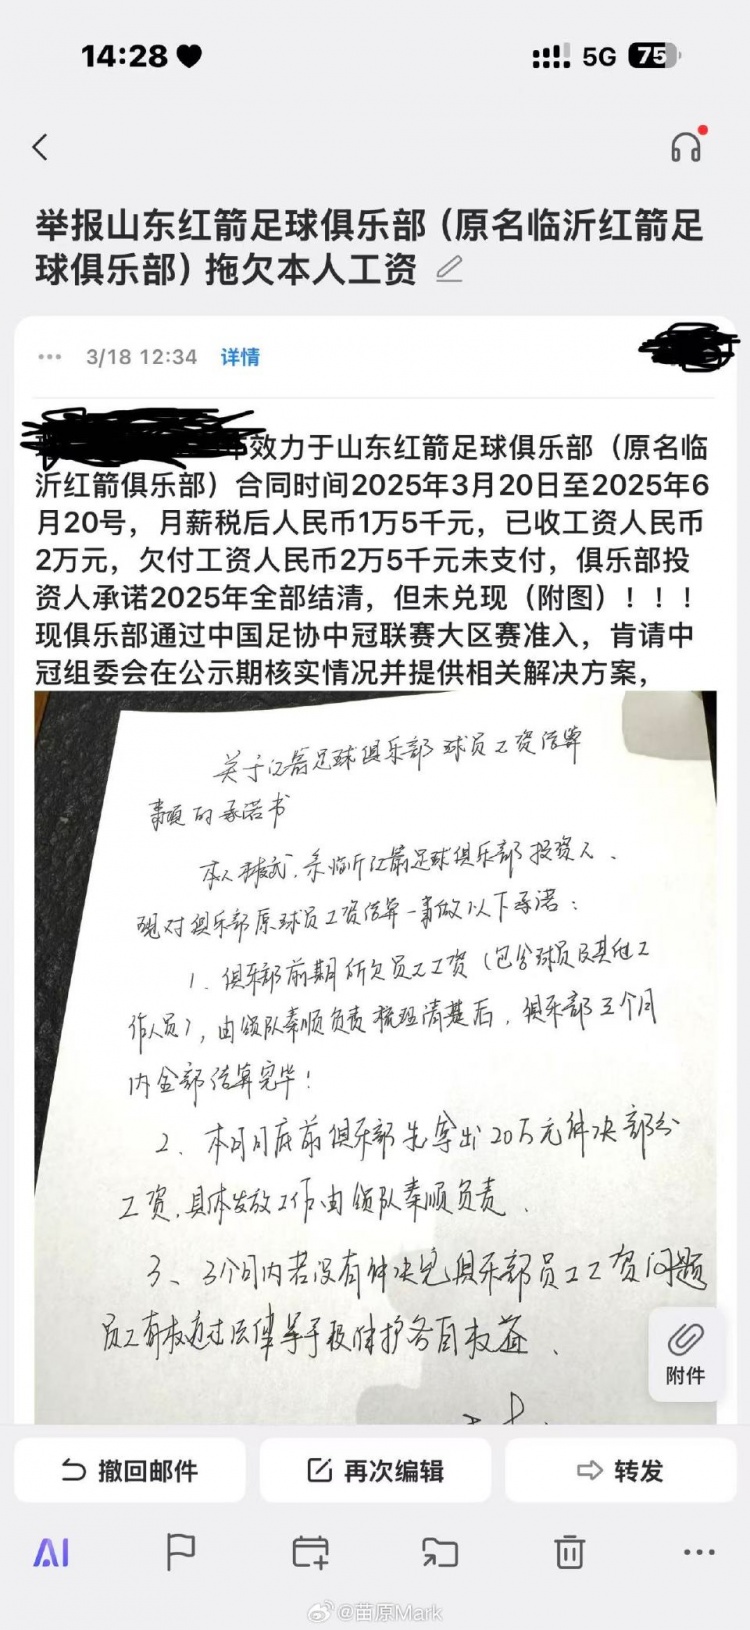 14:28
5G
75
举报山东红箭足球俱乐部（原名临沂红箭足
球俱乐部）拖欠本人工资
3/18 12:34 详情
年效力于山东红箭足球俱乐部（原名临
沂红箭俱乐部）合同时间2025年3月20日至2025年6
月20号，月薪税后人民币1万5千元，已收工资人民币
2万元，欠付工资人民币2万5千元未支付，俱乐部投
资人承诺2025年全部结清，但未兑现（附图）！！！
现俱乐部通过中国足协中冠联赛大区赛准入，肯请中
冠组委会在公示期核实情况并提供相关解决方案，
关于红箭足球俱乐部球员工资结算
事项的承诺书
本人 系临沂红箭足球俱乐部投资人、
现对俱乐部原球员工资结算一事做以下承诺：
1、俱乐部前期所欠员工工资（包含球员及其他工
作人员），由领队秦顺负责梳理清楚后，俱乐部三个月
内全部结算完毕！
2、本月月底前俱乐部先拿出20万元解决部分
工资，具体发放工作由领队秦顺负责、
3、3个月内若没有解决完俱乐部员工工资问题
员工有权通过法律等手段维护各自权益、
附件
撤回邮件
再次编辑
转发
AI
@苗原Mark